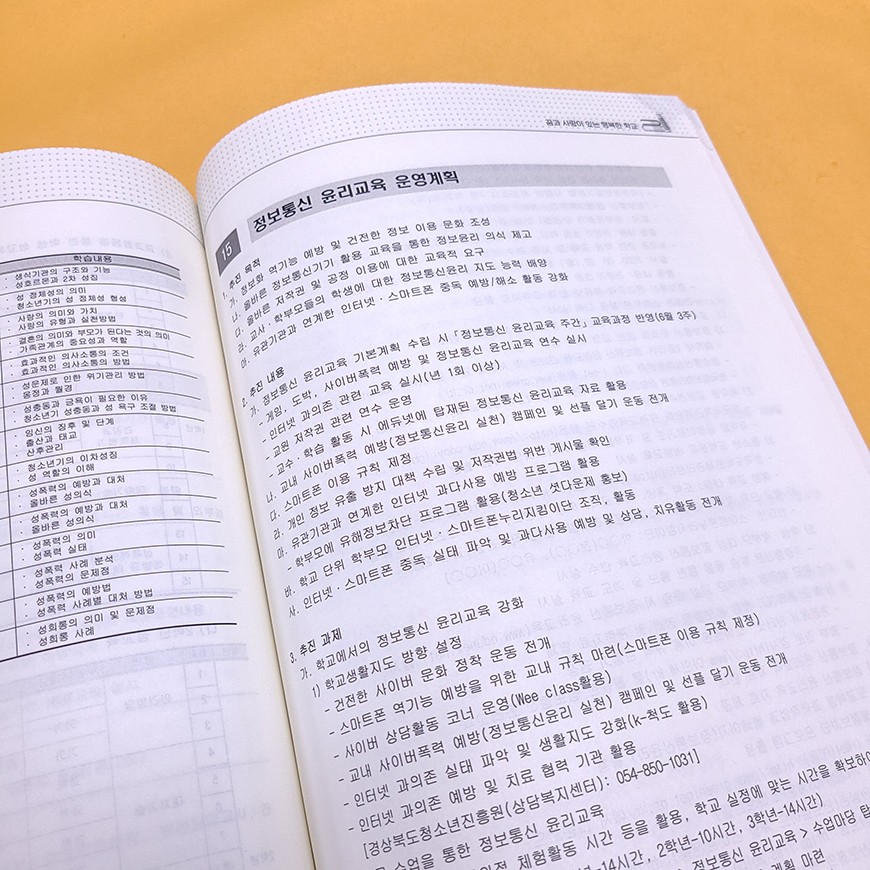 학습내용
· 생식기관의 구조와 기능
· 성호르몬과 2차 성징
· 성 정체성의 의미
· 청소년기의 성 정체성 형성
· 사랑의 의미와 가치
· 사랑의 유형과 실천방법
· 결혼의 의미와 부모가 된다는 것의 의미
· 가족관계의 중요성과 역할
· 효과적인 의사소통의 조건
· 효과적인 의사소통의 방법
· 성문제로 인한 위기관리 방법
· 몽정과 월경
· 성충동과 금욕이 필요한 이유
· 청소년기 성충동과 성 욕구 조절 방법
· 임신의 징후 및 단계
· 출산과 태교
· 산후관리
· 청소년기의 이차성징
· 성 역할의 이해
· 성폭력의 예방과 대처
· 올바른 성의식
· 성폭력의 예방과 대처
· 올바른 성의식
· 성폭력의 의미
· 성폭력 실태
· 성폭력 사례 분석
· 성폭력의 문제점
· 성폭력의 예방법
· 성폭력 사례별 대처 방법
· 성희롱의 의미 및 문제점
· 성희롱 사례
꿈과 사랑이 있는 행복한 학교
15 정보통신 윤리교육 운영계획
1. 추진 목적
가. 정보화 역기능 예방 및 건전한 정보 이용 문화 조성
나. 올바른 정보통신기기 활용 교육을 통한 정보윤리 의식 제고
다. 올바른 저작권 및 공정 이용에 대한 교육적 요구
라. 교사·학부모들의 학생에 대한 정보통신윤리 지도 능력 배양
마. 유관기관과 연계한 인터넷·스마트폰 중독 예방/해소 활동 강화
2. 추진 내용
가. 정보통신 윤리교육 기본계획 수립 시 「정보통신 윤리교육 주간」 교육과정 반영(6월 3주)
- 게임, 도박, 사이버폭력 예방 및 정보통신윤리교육 연수 실시
- 인터넷 과의존 관련 교육 실시(년 1회 이상)
- 교원 저작권 관련 연수 운영
- 교수·학습 활동 시 에듀넷에 탑재된 정보통신 윤리교육 자료 활용
나. 교내 사이버폭력 예방(정보통신윤리 실천) 캠페인 및 선플 달기 운동 전개
다. 스마트폰 이용 규칙 제정
라. 개인 정보 유출 방지 대책 수립 및 저작권법 위반 게시물 확인
마. 유관기관과 연계한 인터넷 과다사용 예방 프로그램 활용
- 학부모에 유해정보차단 프로그램 활용(청소년 셧다운제 홍보)
바. 학교 단위 학부모 인터넷·스마트폰누리지킴이단 조직, 활동
사. 인터넷·스마트폰 중독 실태 파악 및 과다사용 예방 및 상담, 치유활동 전개
3. 추진 과제
가. 학교에서의 정보통신 윤리교육 강화
1) 학교생활지도 방향 설정
- 건전한 사이버 문화 정착 운동 전개
- 스마트폰 역기능 예방을 위한 교내 규칙 마련(스마트폰 이용 규칙 제정)
- 사이버 상담활동 코너 운영(Wee class활용)
- 교내 사이버폭력 예방(정보통신윤리 실천) 캠페인 및 선플 달기 운동 전개
- 인터넷 과의존 실태 파악 및 생활지도 강화(k-척도 활용)
- 인터넷 과의존 예방 및 치료 협력 기관 활용
[경상북도청소년진흥원(상담복지센터): 054-850-1031]
수업을 통한 정보통신 윤리교육
체험활동 시간 등을 활용, 학교 실정에 맞는 시간을 확보하여
14시간, 2학년-10시간, 3학년-14시간)
정보통신 윤리교육 > 수업마당 탑
계획 마련